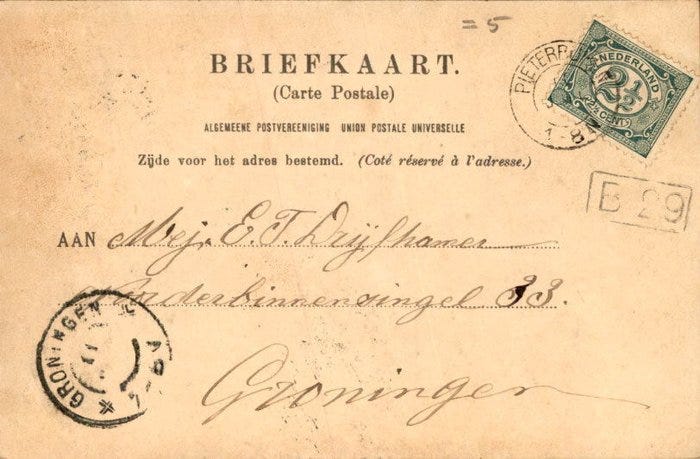 = 5
BRIEFKAART.
(Carte Postale)
ALGEMEENE POSTVEREENIGING UNION POSTALE UNIVERSELLE
Zijde voor het adres bestemd. (Coté réservé à l'adresse.)
NEDERLAND
2½
CENT
B 29
AAN Mej. E. T. Drijfhamer
33.
Groningen
GRONINGEN